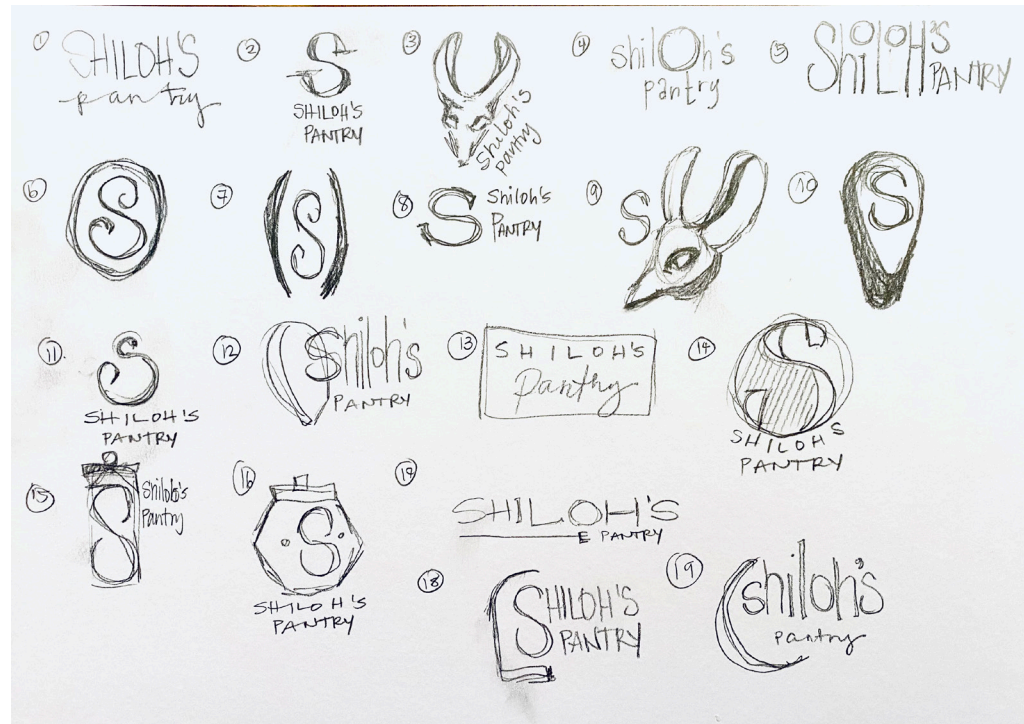 1
SHILOH'S
pantry
2
S
SHILOH'S
PANTRY
3
Shiloh's
pantry
4
shilOh's
pantry
5
SHiLOH'S
PANTRY
6
S
7
S
8
S
Shiloh's
PANTRY
9
S
10
S
11.
S
SHILOH'S
PANTRY
12
Shiloh's
PANTRY
13
SHILOH'S
Pantry
14
S
SHILOHS
PANTRY
15
S
Shiloh's
Pantry
16
S
SHILOH'S
PANTRY
SHILOH'S
PANTRY
18
SHILOH'S
PANTRY
19
shiloh's
pantry